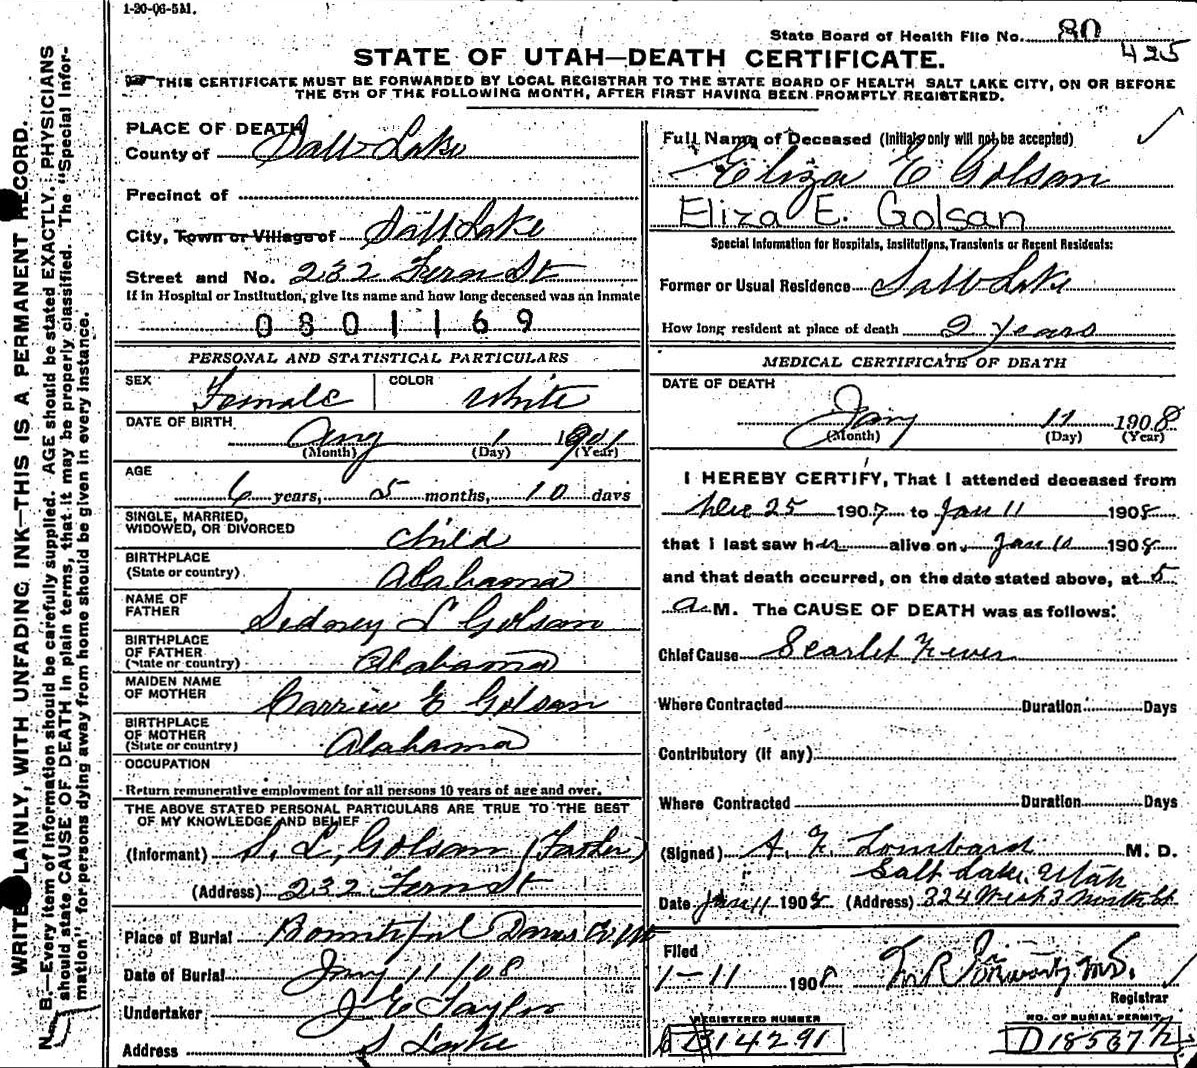 1-20-06-5M.
State Board of Health File No. 80
425
STATE OF UTAH—DEATH CERTIFICATE.
THIS CERTIFICATE MUST BE FORWARDED BY LOCAL REGISTRAR TO THE STATE BOARD OF HEALTH SALT LAKE CITY, ON OR BEFORE
THE 5TH OF THE FOLLOWING MONTH, AFTER FIRST HAVING BEEN PROMPTLY REGISTERED.
PLACE OF DEATH
County of Salt Lake
Precinct of
City, Town or Village of Salt Lake
Street and No. 232 Fern St
If in Hospital or Institution, give its name and how long deceased was an inmate
0801169
PERSONAL AND STATISTICAL PARTICULARS
SEX Female COLOR White
DATE OF BIRTH Aug 1 1901
(Month) (Day) (Year)
AGE
6 years, 5 months, 10 days
SINGLE, MARRIED,
WIDOWED, OR DIVORCED child
BIRTHPLACE
(State or country) Alabama
NAME OF
FATHER Sidney L Golsan
BIRTHPLACE
OF FATHER
(State or country) Alabama
MAIDEN NAME
OF MOTHER Carrie E Golsan
BIRTHPLACE
OF MOTHER
(State or country) Alabama
OCCUPATION
Return remunerative employment for all persons 10 years of age and over.
THE ABOVE STATED PERSONAL PARTICULARS ARE TRUE TO THE BEST
OF MY KNOWLEDGE AND BELIEF
(Informant) S. L. Golsan (Father)
(Address) 232 Fern St
Place of Burial Bountiful Davis Co
Date of Burial Jany 11/08
Undertaker J E Taylor
Address S Lake
Full Name of Deceased (Initials only will not be accepted)
Eliza E Golsan
Eliza E. Golsan
Special Information for Hospitals, Institutions, Transients or Recent Residents:
Former or Usual Residence Salt Lake
How long resident at place of death 2 years
MEDICAL CERTIFICATE OF DEATH
DATE OF DEATH
Jany 11 1908
(Month) (Day) (Year)
I HEREBY CERTIFY, That I attended deceased from
Dec 25 1907 to Jan 11 1908
that I last saw her alive on Jan 10 1908
and that death occurred, on the date stated above, at 5
a M. The CAUSE OF DEATH was as follows:
Chief Cause Scarlet Fever
Where Contracted Duration Days
Contributory (if any)
Where Contracted Duration Days
(Signed) A. F. Lombard M. D.
Salt Lake, Utah
Date Jan 11 1908 (Address) 324 West 3 North St
Filed
1-11 1908 M.D.
Registrar
REGISTERED NUMBER
B14291
NO. OF BURIAL PERMIT
D18537½
WRITE PLAINLY, WITH UNFADING INK—THIS IS A PERMANENT RECORD.
N. B.—Every item of information should be carefully supplied. AGE should be stated EXACTLY. PHYSICIANS
should state CAUSE OF DEATH in plain terms, that it may be properly classified. The "Special Infor-
mation" for persons dying away from home should be given in every instance.